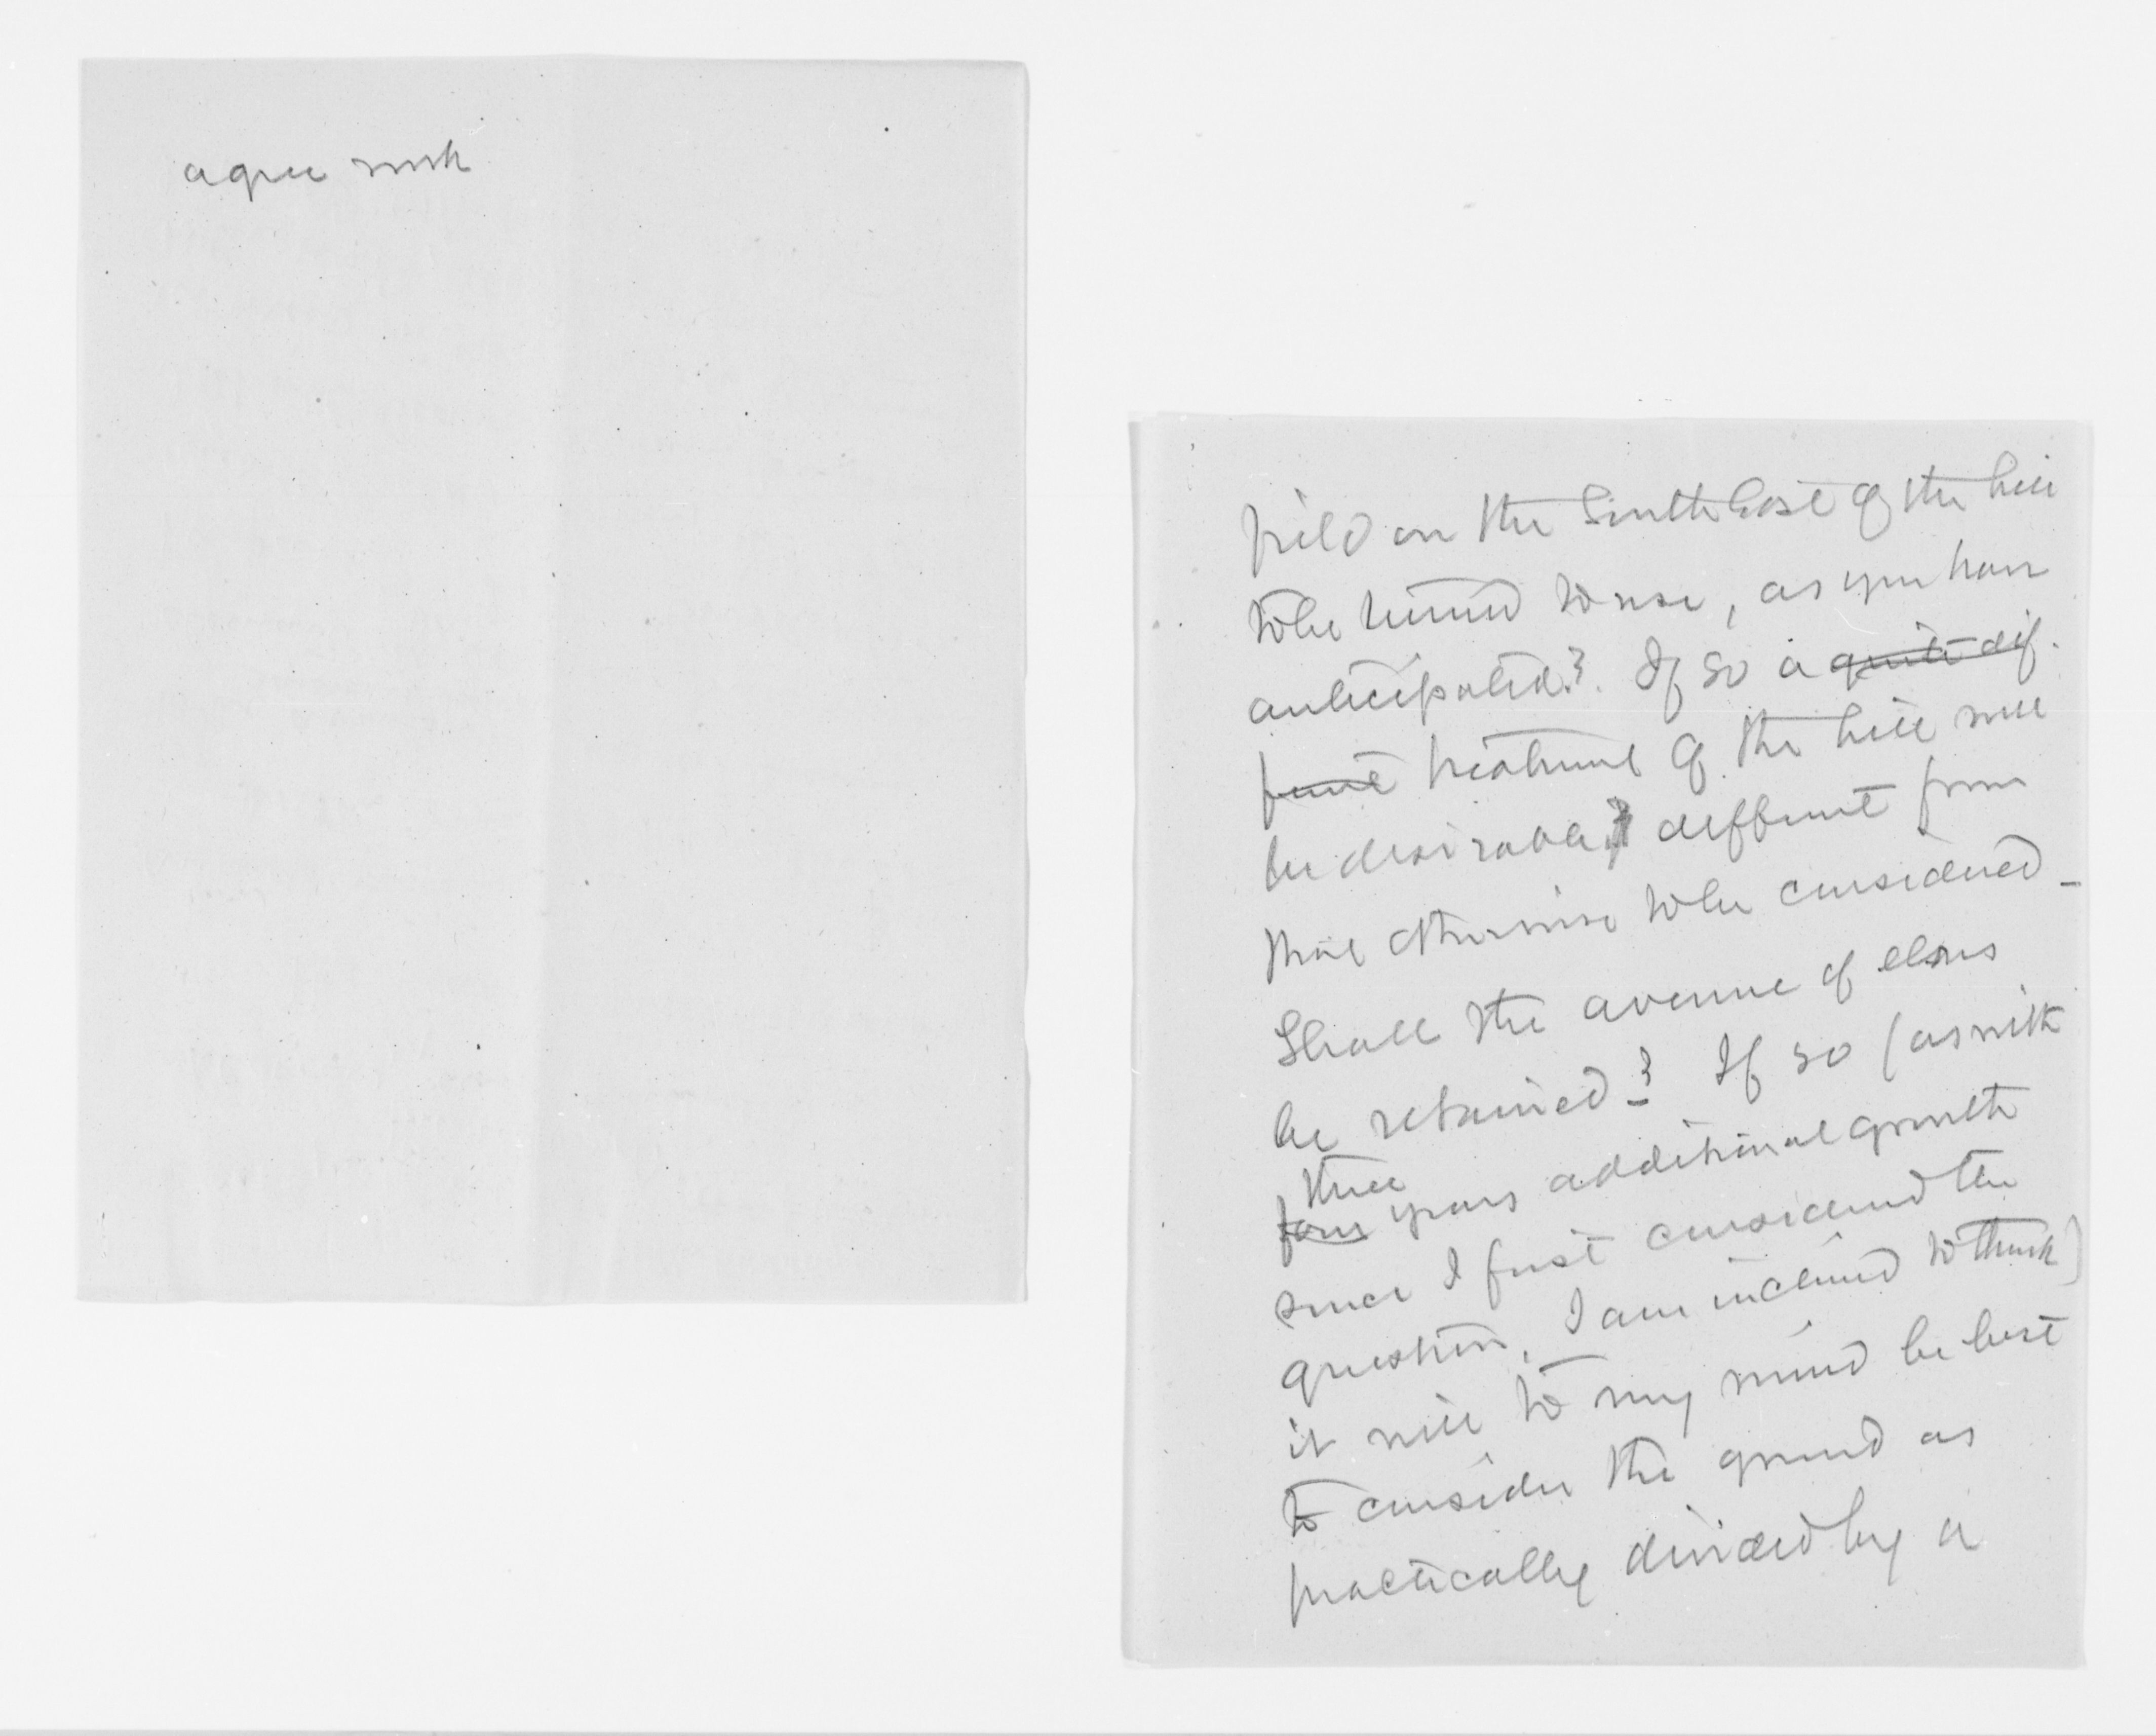 agree with
field on the South East of the hill
to be turned to use, as you have
anticipated?. If so a quite dif-
ferent treatment of the hill will
be desirable different from
that otherwise to be considered -
Shall the avenue of elms
be retained? If so (as with
three
four years additional growth
since I first considered the
question, I am inclined to think)
it will to my mind be best
to consider the ground as
practically divided by a